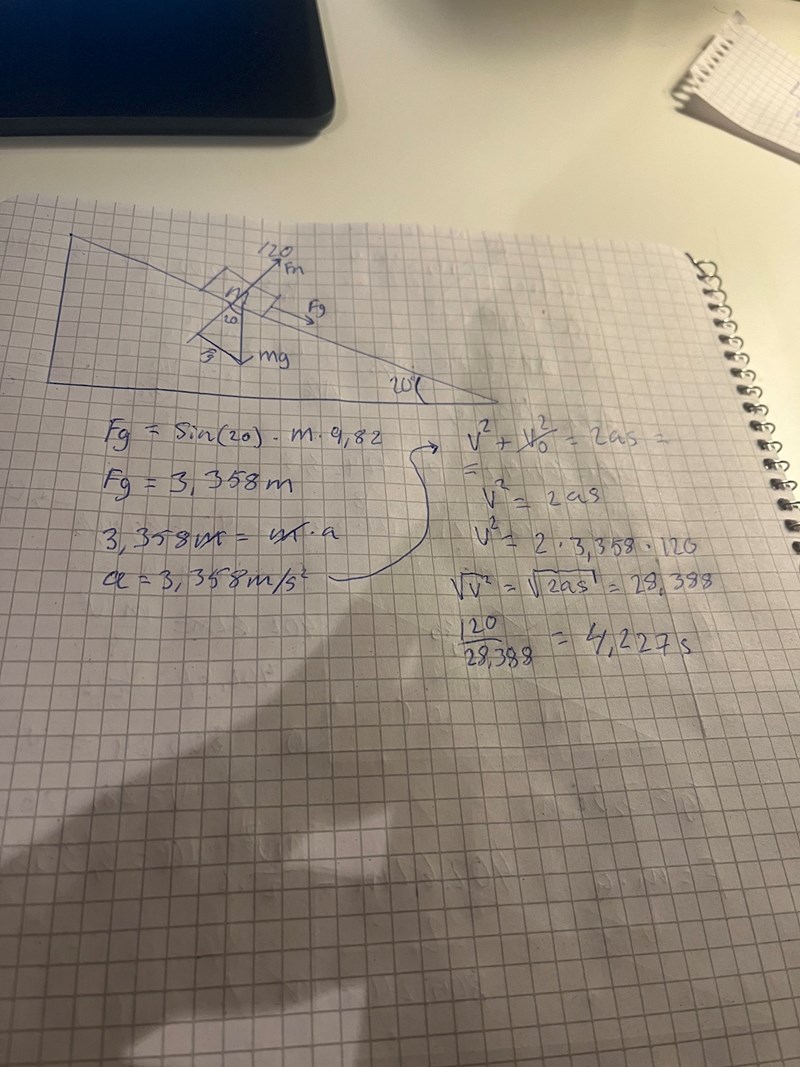 120
Fn
Fg
mg
20°
Fg = Sin(20) · m · 9,82
Fg = 3,358m
3,358m = m · a
a = 3,358m/s²
v² + v₀² = 2as =
=
v² = 2as
v² = 2 · 3,358 · 120
√v² = √2as = 28,388
120/28,388 = 4,227s